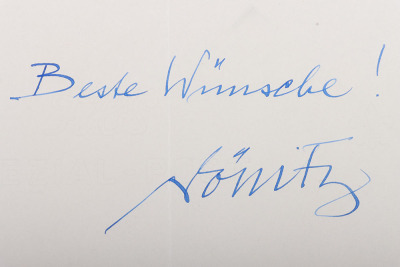 Beste Wünsche!
Dönitz